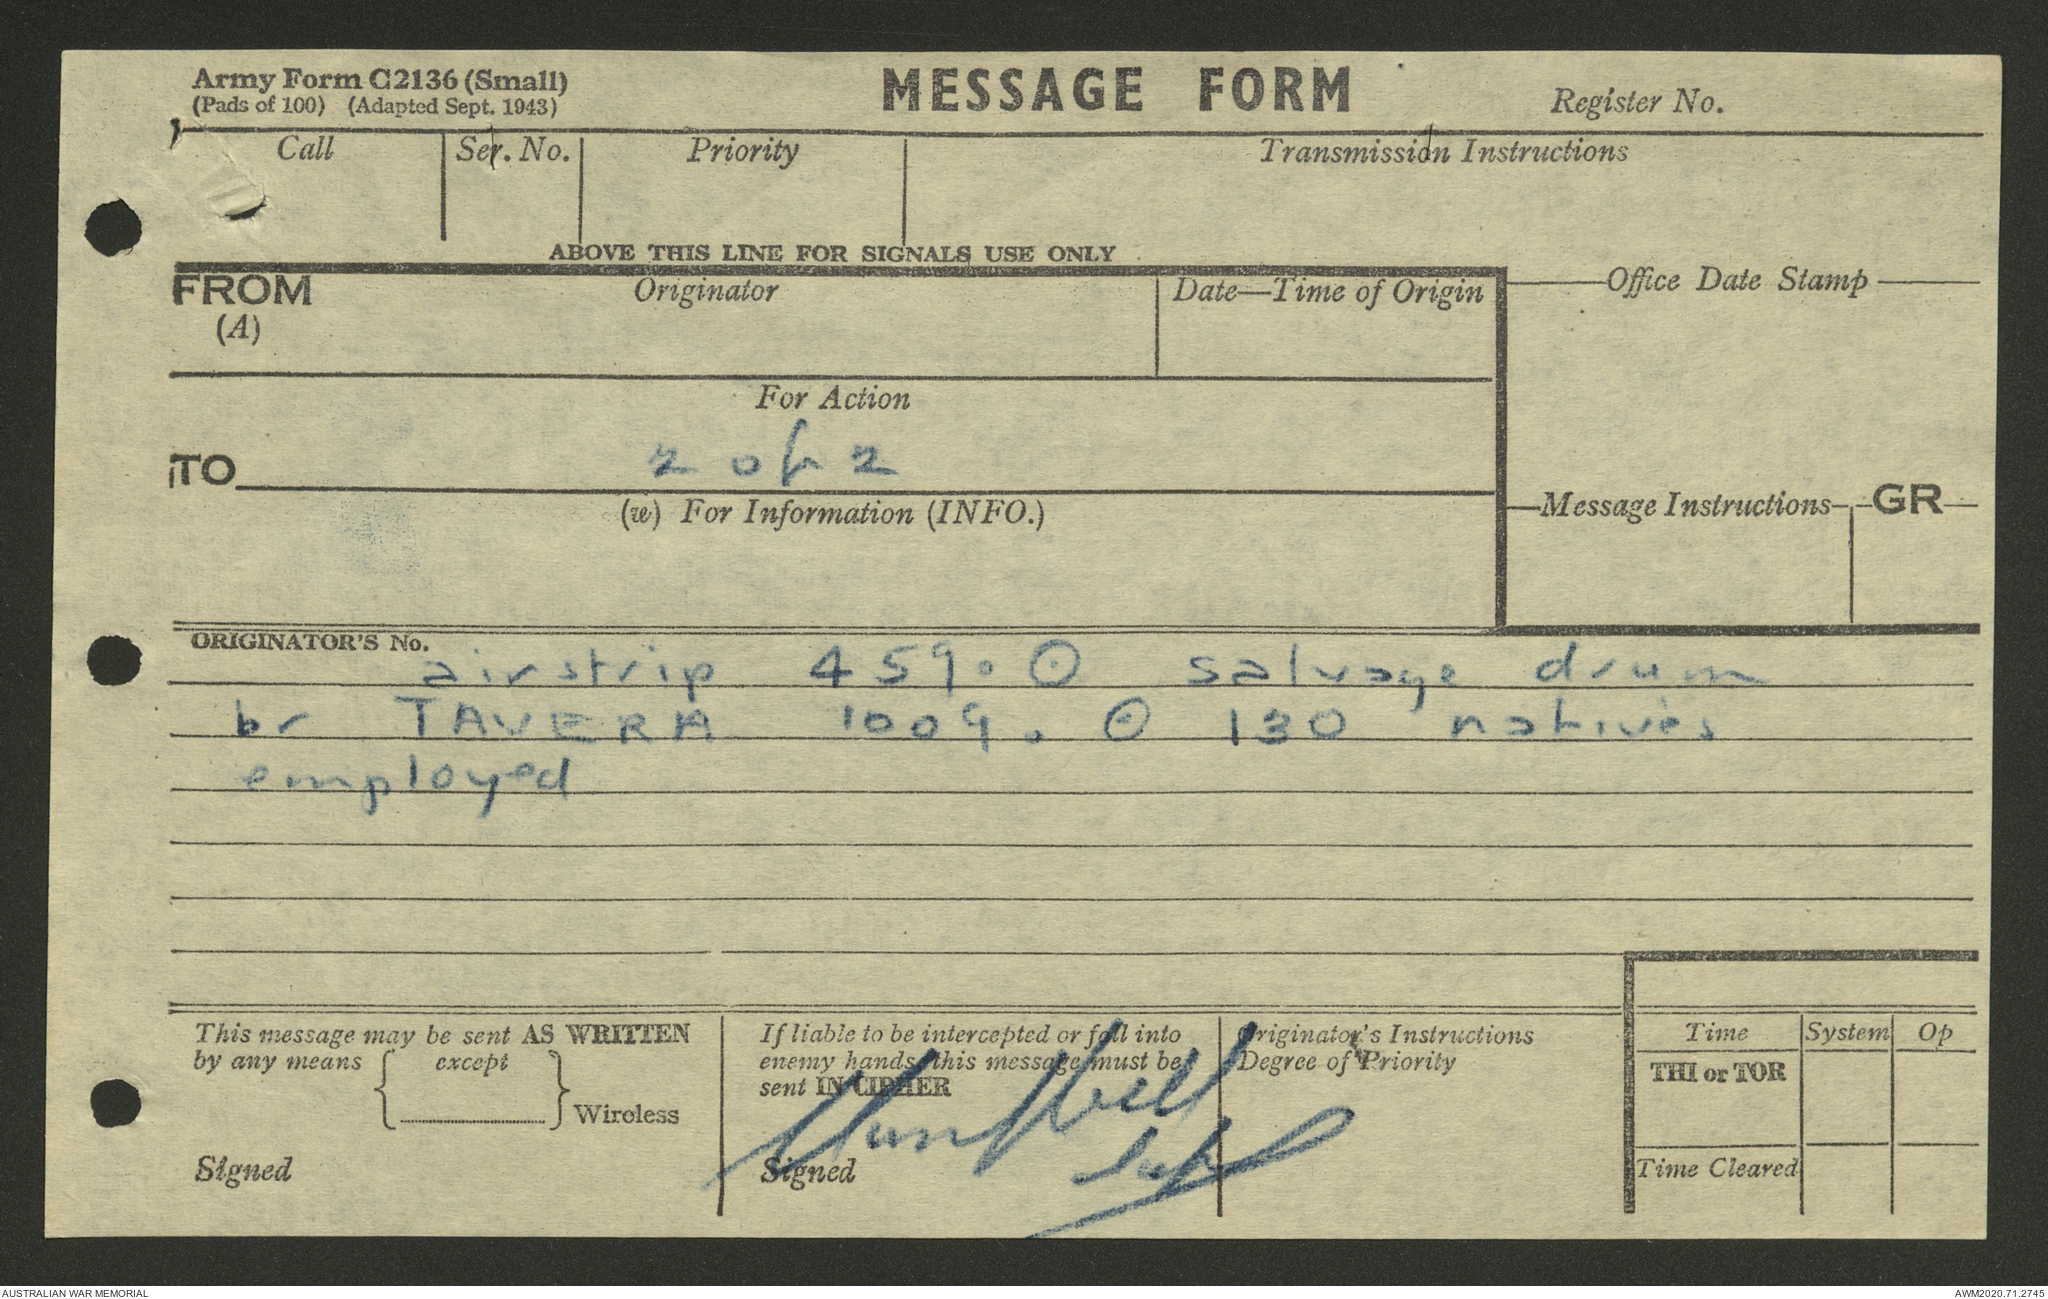 Army Form C2136 (Small)
(Pads of 100) (Adapted Sept. 1943)
MESSAGE FORM
Register No.
Call
Ser. No.
Priority
Transmission Instructions
ABOVE THIS LINE FOR SIGNALS USE ONLY
FROM
(A)
Originator
Date—Time of Origin
Office Date Stamp
For Action
TO
2 of 2
(w) For Information (INFO.)
Message Instructions
GR
ORIGINATOR'S No.
airstrip 459. ⊙ salvage drum
br TAVERA 1009. ⊙ 130 natives
employed
This message may be sent AS WRITTEN
by any means
except
Wireless
Signed
If liable to be intercepted or fall into
enemy hands, this message must be
sent IN CIPHER
Signed
Originator's Instructions
Degree of Priority
Time
System
Op
THI or TOR
Time Cleared
AUSTRALIAN WAR MEMORIAL
AWM2020.71.2745